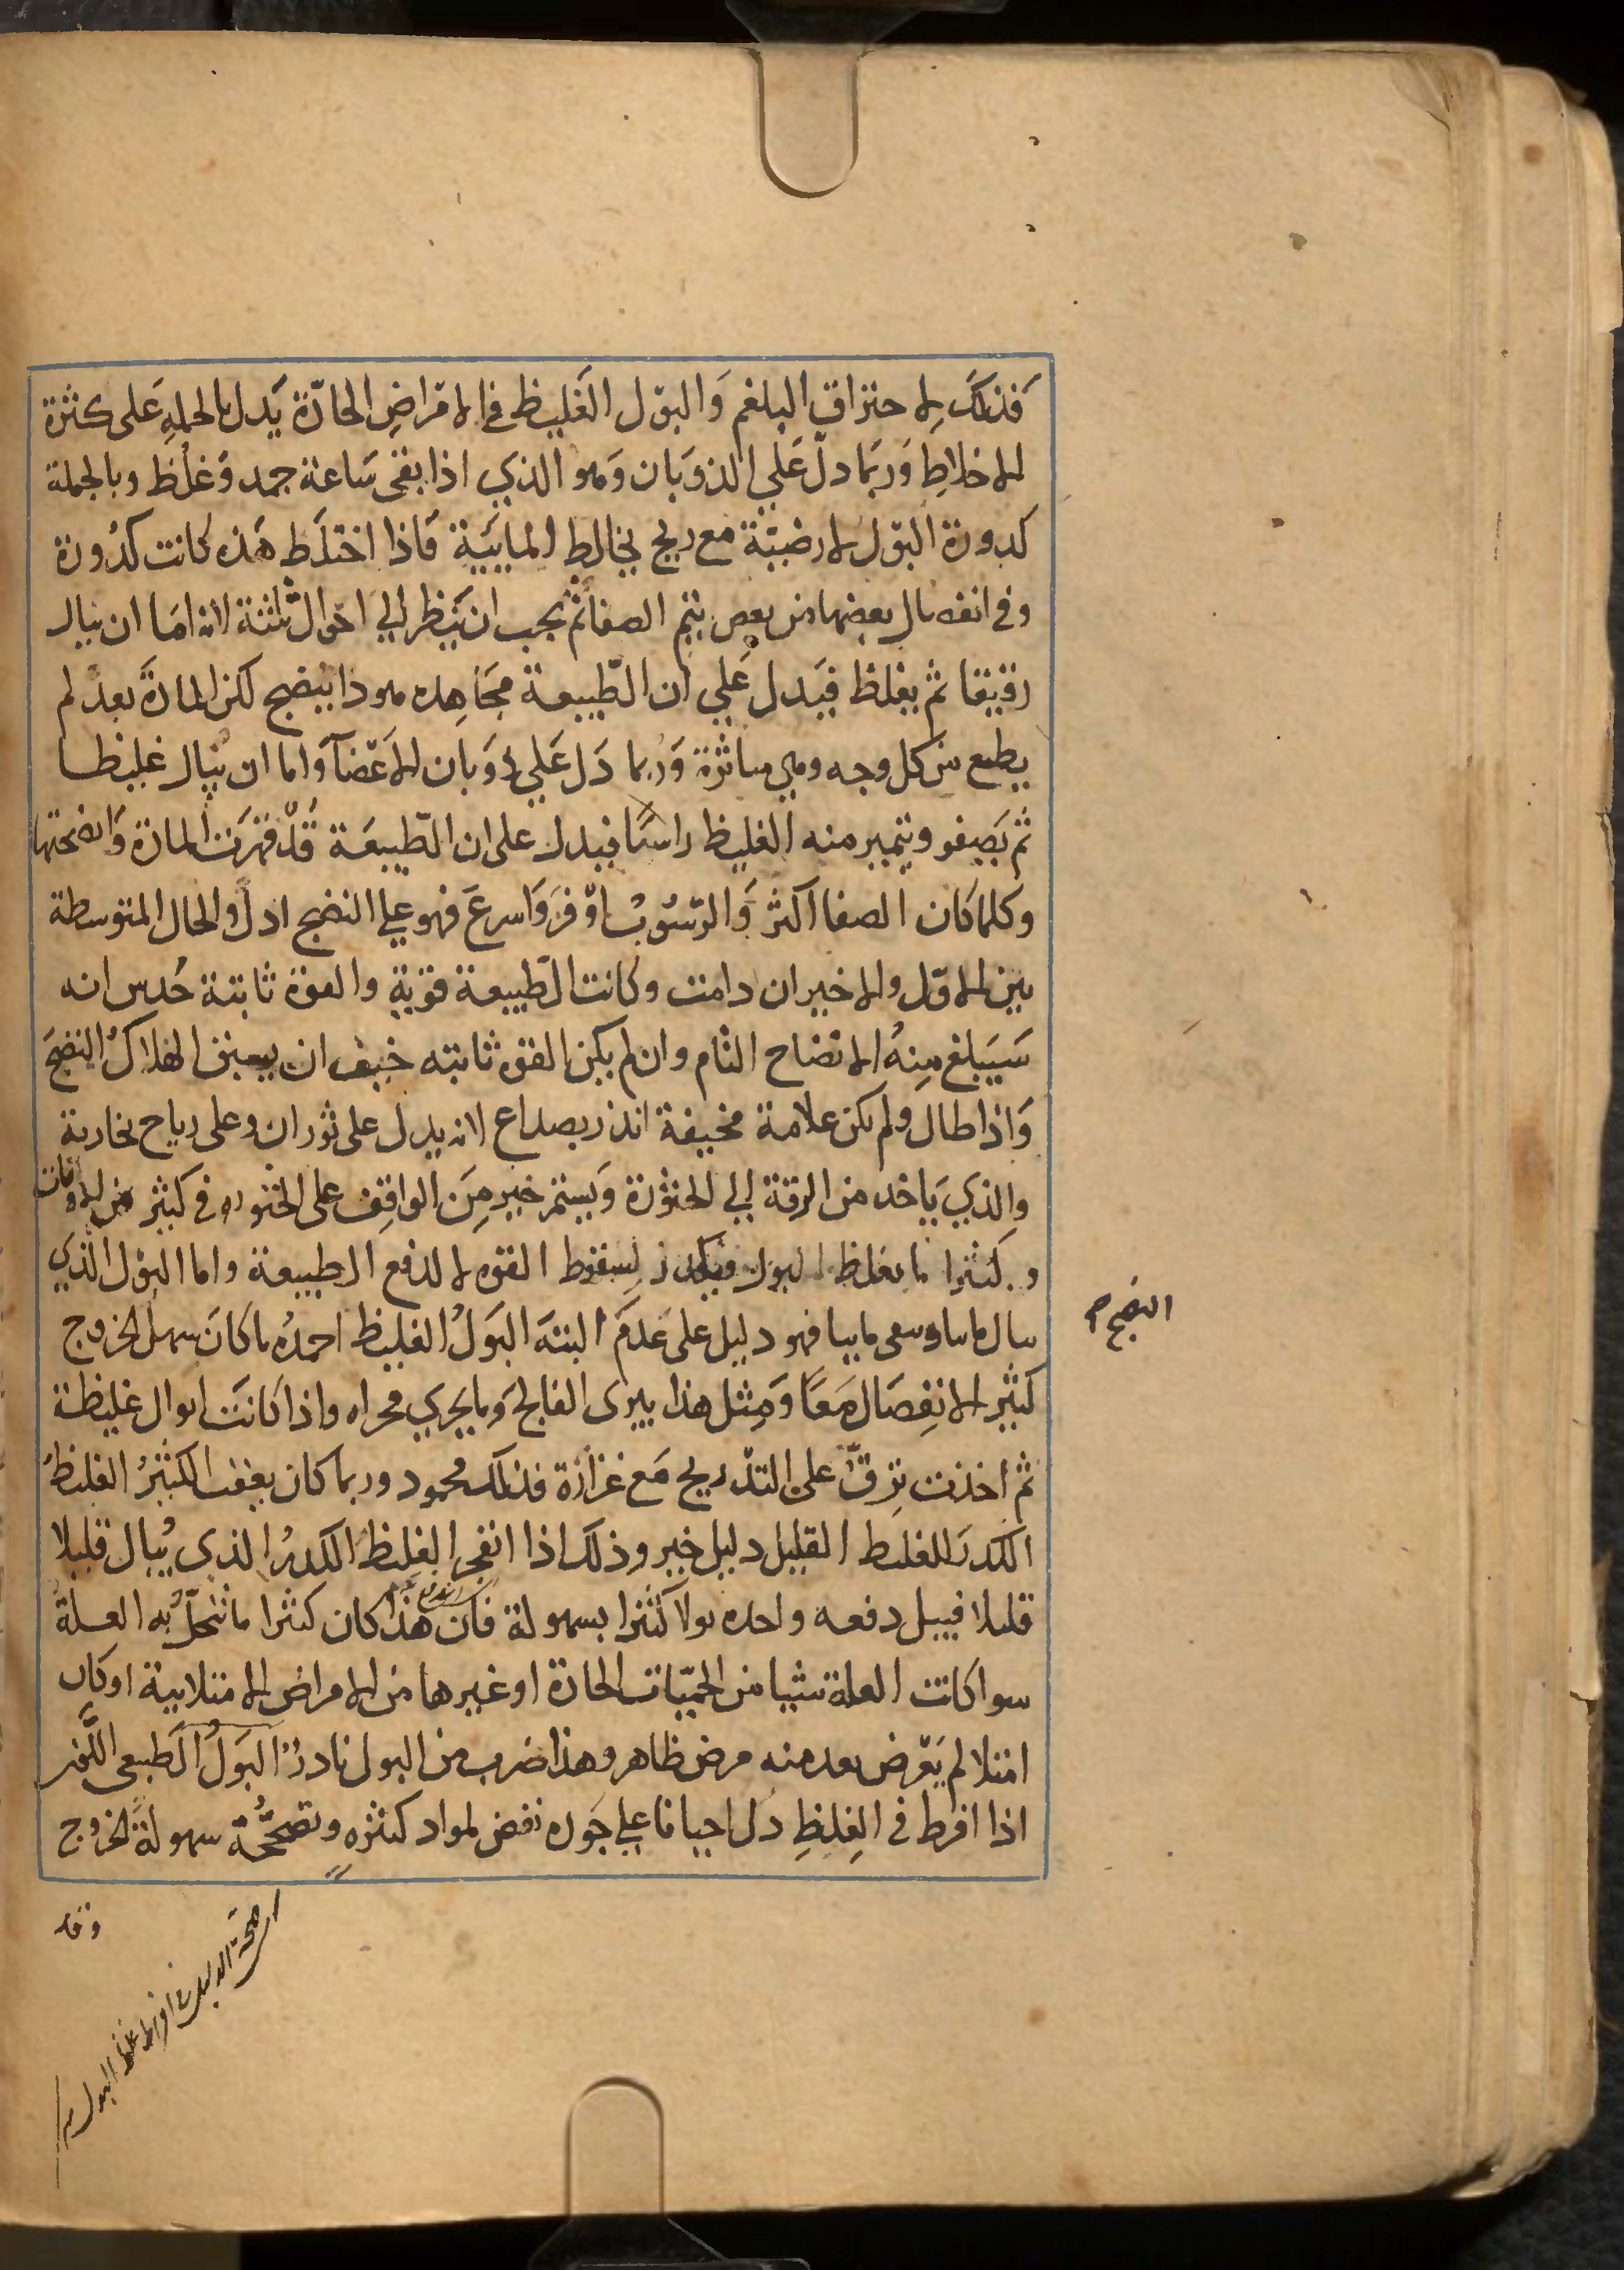 فذلك لاحتراق البلغم وَالبوْل الغَليظ في الامْراضِ الحادّة يَدل بالجملهِ عَلى كثرة
الاخلاطِ وَربَما دلّ عَلي الذوَبان وَهو الذي اذا بقى سَاعة جمد وَغلُظ وبالجملة
كدورة البوْل لارضيّة مع ريح يخالط المايَيَة فَاذا اختلَط هَذه كانت كدُورة
وفي انفصال بعضها من بعض يتم الصفا ثمّ يجب ان يَنظر الي احْوال ثلثة لانه امَا ان يبال
رقيقا ثم يغلظ فيَدل عَلي ان الطّبيعة مجَاهِده هو ذا يُنضج لكن المادَة بعدُ لم
يطع من كل وجه وهي متاثرة وَربما دَل عَلي ذوَبان الاعْضآ وَاما ان يبال غليظا
ثم يَصفو ويتميز منه الغليظ راسبًا فيدل على ان الطّبيعَة قدْ قهرَت المادة وَانضجتها
وكلما كان الصفا اكثرَ وَالرّسُوبُ اوْفرَ وَاسرعَ فهو علي النضج ادلَ والحال المتوسطة
بين الاوّل والاخير ان دامت وكانت الطّبيعة قوَية والقوة ثابتة حُدس انه
سَيَبلغ مِنهُ الانضاح التام وان لم يكن القوة ثابته خيف ان يسبق الهلاكُ النضجَ
وَاذا طال ولم تكن علامة مخيفة انذر بصداع لانه يدل على ثوران وعلى رياح بخارية
والذي يَاخد من الرقة الي الخثوْرة وَيستمر خير مِنَ الواقِف على الخثوره في كثير من الاوقات
وكثيرا ما يغلظ البول ويكدر لسقوط القوه لا لدفع الطبيعة واما البوْل الذي
يبال مائيا ويبقى مائيا فهو دليل على عَدَم البتةَ البَولُ الغليظ احمدُه ما كانَ سهلَ الخروج
كثير الانفِصَال مَعًا وَمِثل هذا يبرى الفالج وَما يجري مجراه واذا كانَت ابوال غليظة
ثم اخذت ترقّ على التدّريج مَع غزارة فذلك محمود وربما كان يعقب الكثيرُ الغليظُ
الكدرُ للغليط القليل دليل خير وذلَك اذا انفجر الغليظ الكدرُ الذي يُبال قليلا
قليلا فيبل دفعه واحده بولا كثيرا بسهولة فان هذا كان كثيرا ما تنحلّ به العلة
سوا كانت العلة شيا من الحمّيات الحادة او غيرها من الامراض الامتلايية او كان
امتلا لم يَعْرض بعد منه مرض ظاهر وهذا ضرب من البول نادرُ البَولُ الطَبيعى اللّونِ
اذا افرط في الغِلظِ دل احيانا علي جَوده نفض لمواد كثيره وتصحّحُه سهولةُ الخروج
النضج صح
وقد